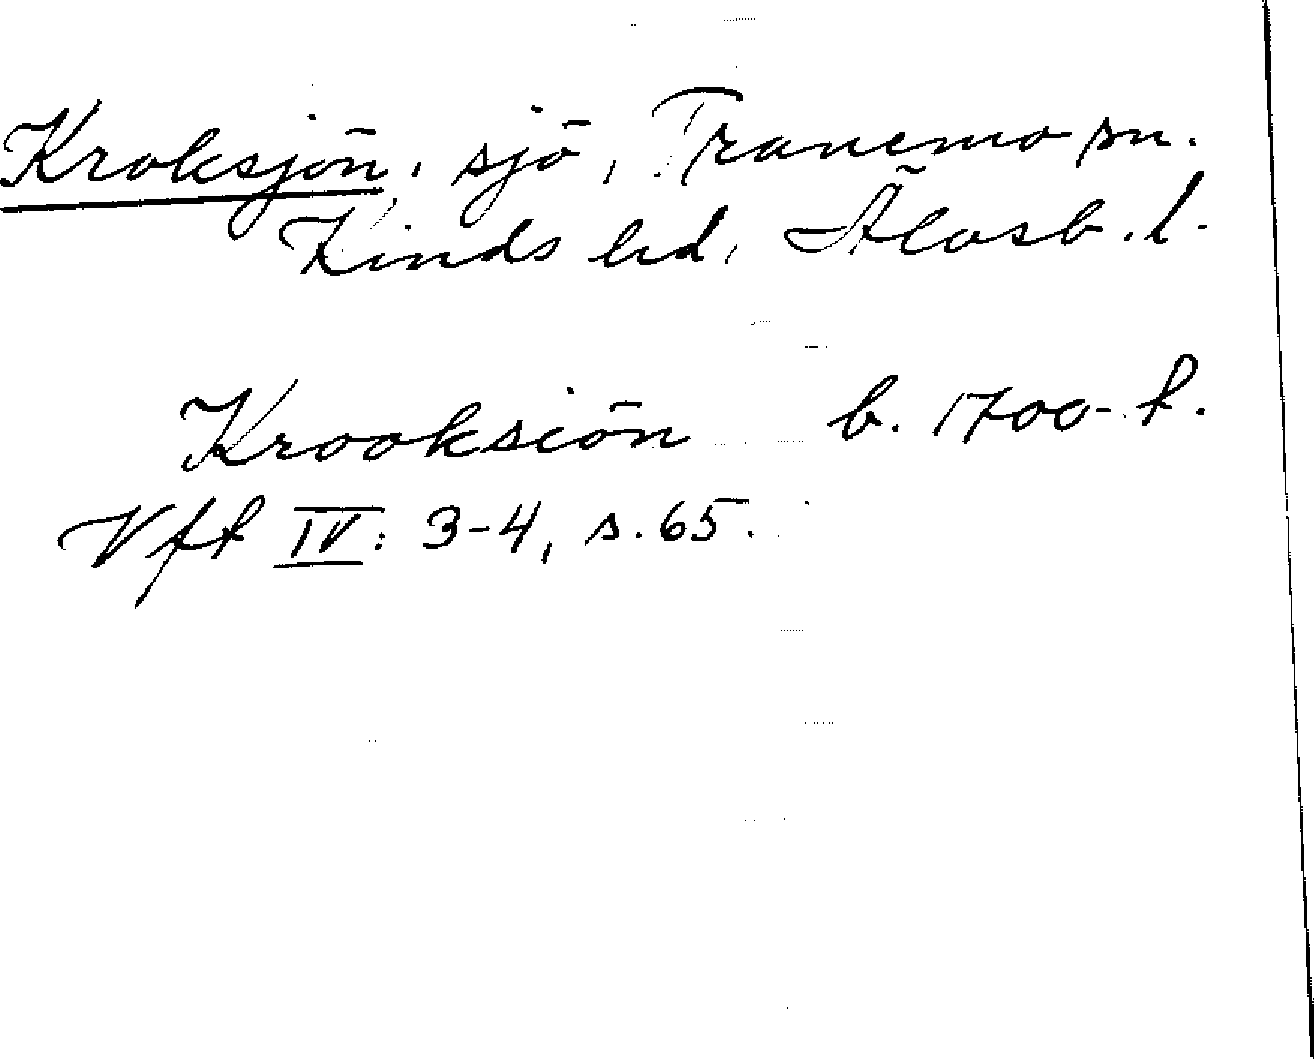 Kroksjön, sjö, Tranemo sn.
Kinds hd, Älvsb. l.
Krooksiön b. 1700-t.
Vft IV: 3-4, s. 65.